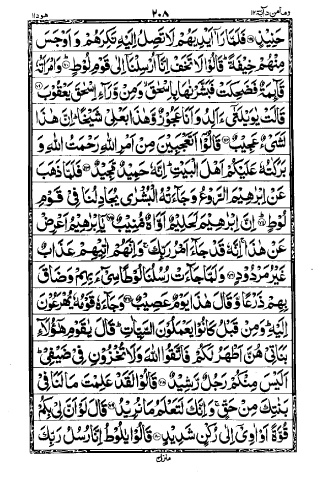 ومامن دآبة ١٢ ٢٠٨ هود ١١
حَنِيْذٍ ۝ فَلَمَّا رَآٰ اَيْدِيَهُمْ لَا تَصِلُ اِلَيْهِ نَكِرَهُمْ وَ اَوْجَسَ
مِنْهُمْ خِيْفَةً ؕ قَالُوْا لَا تَخَفْ اِنَّاۤ اُرْسِلْنَاۤ اِلٰى قَوْمِ لُوْطٍ ۝ وَ امْرَاَتُهٗ
قَآئِمَةٌ فَضَحِكَتْ فَبَشَّرْنٰهَا بِاِسْحٰقَ ۙ وَ مِنْ وَّرَآءِ اِسْحٰقَ يَعْقُوْبَ ۝
قَالَتْ يٰوَيْلَتٰۤى ءَاَلِدُ وَ اَنَا عَجُوْزٌ وَّ هٰذَا بَعْلِيْ شَيْخًا ؕ اِنَّ هٰذَا
لَشَيْءٌ عَجِيْبٌ ۝ قَالُوْۤا اَتَعْجَبِيْنَ مِنْ اَمْرِ اللّٰهِ رَحْمَتُ اللّٰهِ وَ
بَرَكٰتُهٗ عَلَيْكُمْ اَهْلَ الْبَيْتِ ؕ اِنَّهٗ حَمِيْدٌ مَّجِيْدٌ ۝ فَلَمَّا ذَهَبَ
عَنْ اِبْرٰهِيْمَ الرَّوْعُ وَ جَآءَتْهُ الْبُشْرٰى يُجَادِلُنَا فِيْ قَوْمِ
لُوْطٍ ۝ اِنَّ اِبْرٰهِيْمَ لَحَلِيْمٌ اَوَّاهٌ مُّنِيْبٌ ۝ يٰۤاِبْرٰهِيْمُ اَعْرِضْ
عَنْ هٰذَا ۚ اِنَّهٗ قَدْ جَآءَ اَمْرُ رَبِّكَ ۚ وَ اِنَّهُمْ اٰتِيْهِمْ عَذَابٌ
غَيْرُ مَرْدُوْدٍ ۝ وَ لَمَّا جَآءَتْ رُسُلُنَا لُوْطًا سِيْٓءَ بِهِمْ وَ ضَاقَ
بِهِمْ ذَرْعًا وَّ قَالَ هٰذَا يَوْمٌ عَصِيْبٌ ۝ وَ جَآءَهٗ قَوْمُهٗ يُهْرَعُوْنَ
اِلَيْهِ ؕ وَ مِنْ قَبْلُ كَانُوْا يَعْمَلُوْنَ السَّيِّاٰتِ ؕ قَالَ يٰقَوْمِ هٰۤؤُلَآءِ
بَنَاتِيْ هُنَّ اَطْهَرُ لَكُمْ فَاتَّقُوا اللّٰهَ وَ لَا تُخْزُوْنِ فِيْ ضَيْفِيْ ؕ
اَلَيْسَ مِنْكُمْ رَجُلٌ رَّشِيْدٌ ۝ قَالُوْا لَقَدْ عَلِمْتَ مَا لَنَا فِيْ
بَنٰتِكَ مِنْ حَقٍّ ۚ وَ اِنَّكَ لَتَعْلَمُ مَا نُرِيْدُ ۝ قَالَ لَوْ اَنَّ لِيْ بِكُمْ
قُوَّةً اَوْ اٰوِيْۤ اِلٰى رُكْنٍ شَدِيْدٍ ۝ قَالُوْا يٰلُوْطُ اِنَّا رُسُلُ رَبِّكَ